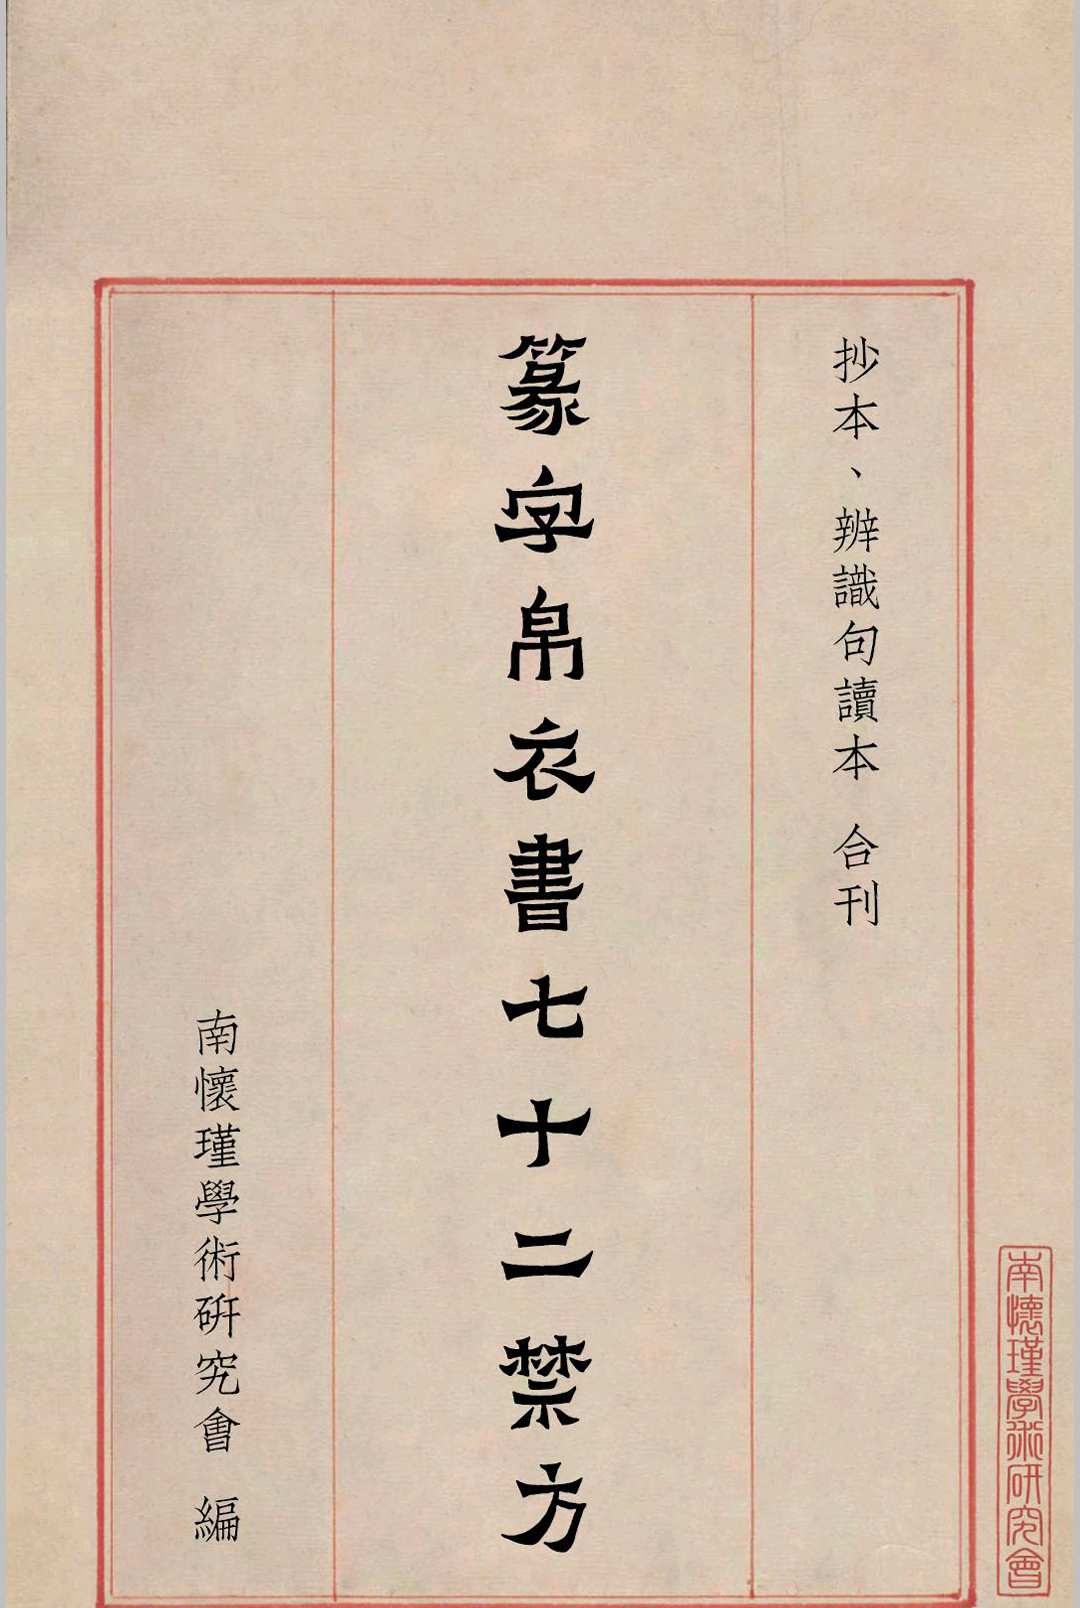 抄本、辨識句讀本 合刊
篆字帛衣書七十二禁方
南懷瑾學術研究會 編
南懷瑾學術研究會